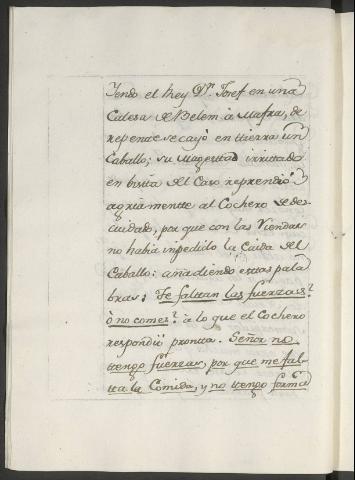 Yendo el Rey Dn. Josef en una
Calesa de Belem à Mafra, de
repente se cayò en tierra un
Caballo; su Magestad irritado
en bista del Caso reprendiò
agriamentte al Cochero de des-
cuidado, por que con las Riendas
no habia impedido la Caida del
Caballo: añadiendo estas pala
bras: Te faltan las fuerzas?
ò no comes? à lo que el Cochero
respondiò pronto. Señor no
ttengo fuerzas, por que me fal-
tta la Comida, y no ttengo forma